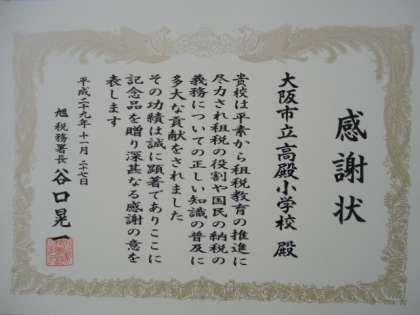 感謝状
大阪市立高殿小学校 殿
貴校は平素から租税教育の推進に
尽力され租税の役割や国民の納税の
義務についての正しい知識の普及に
多大な貢献をされました
その功績は誠に顕著でありここに
記念品を贈り深甚なる感謝の意を
表します
平成二十九年十一月二十七日
旭税務署長 谷口晃一